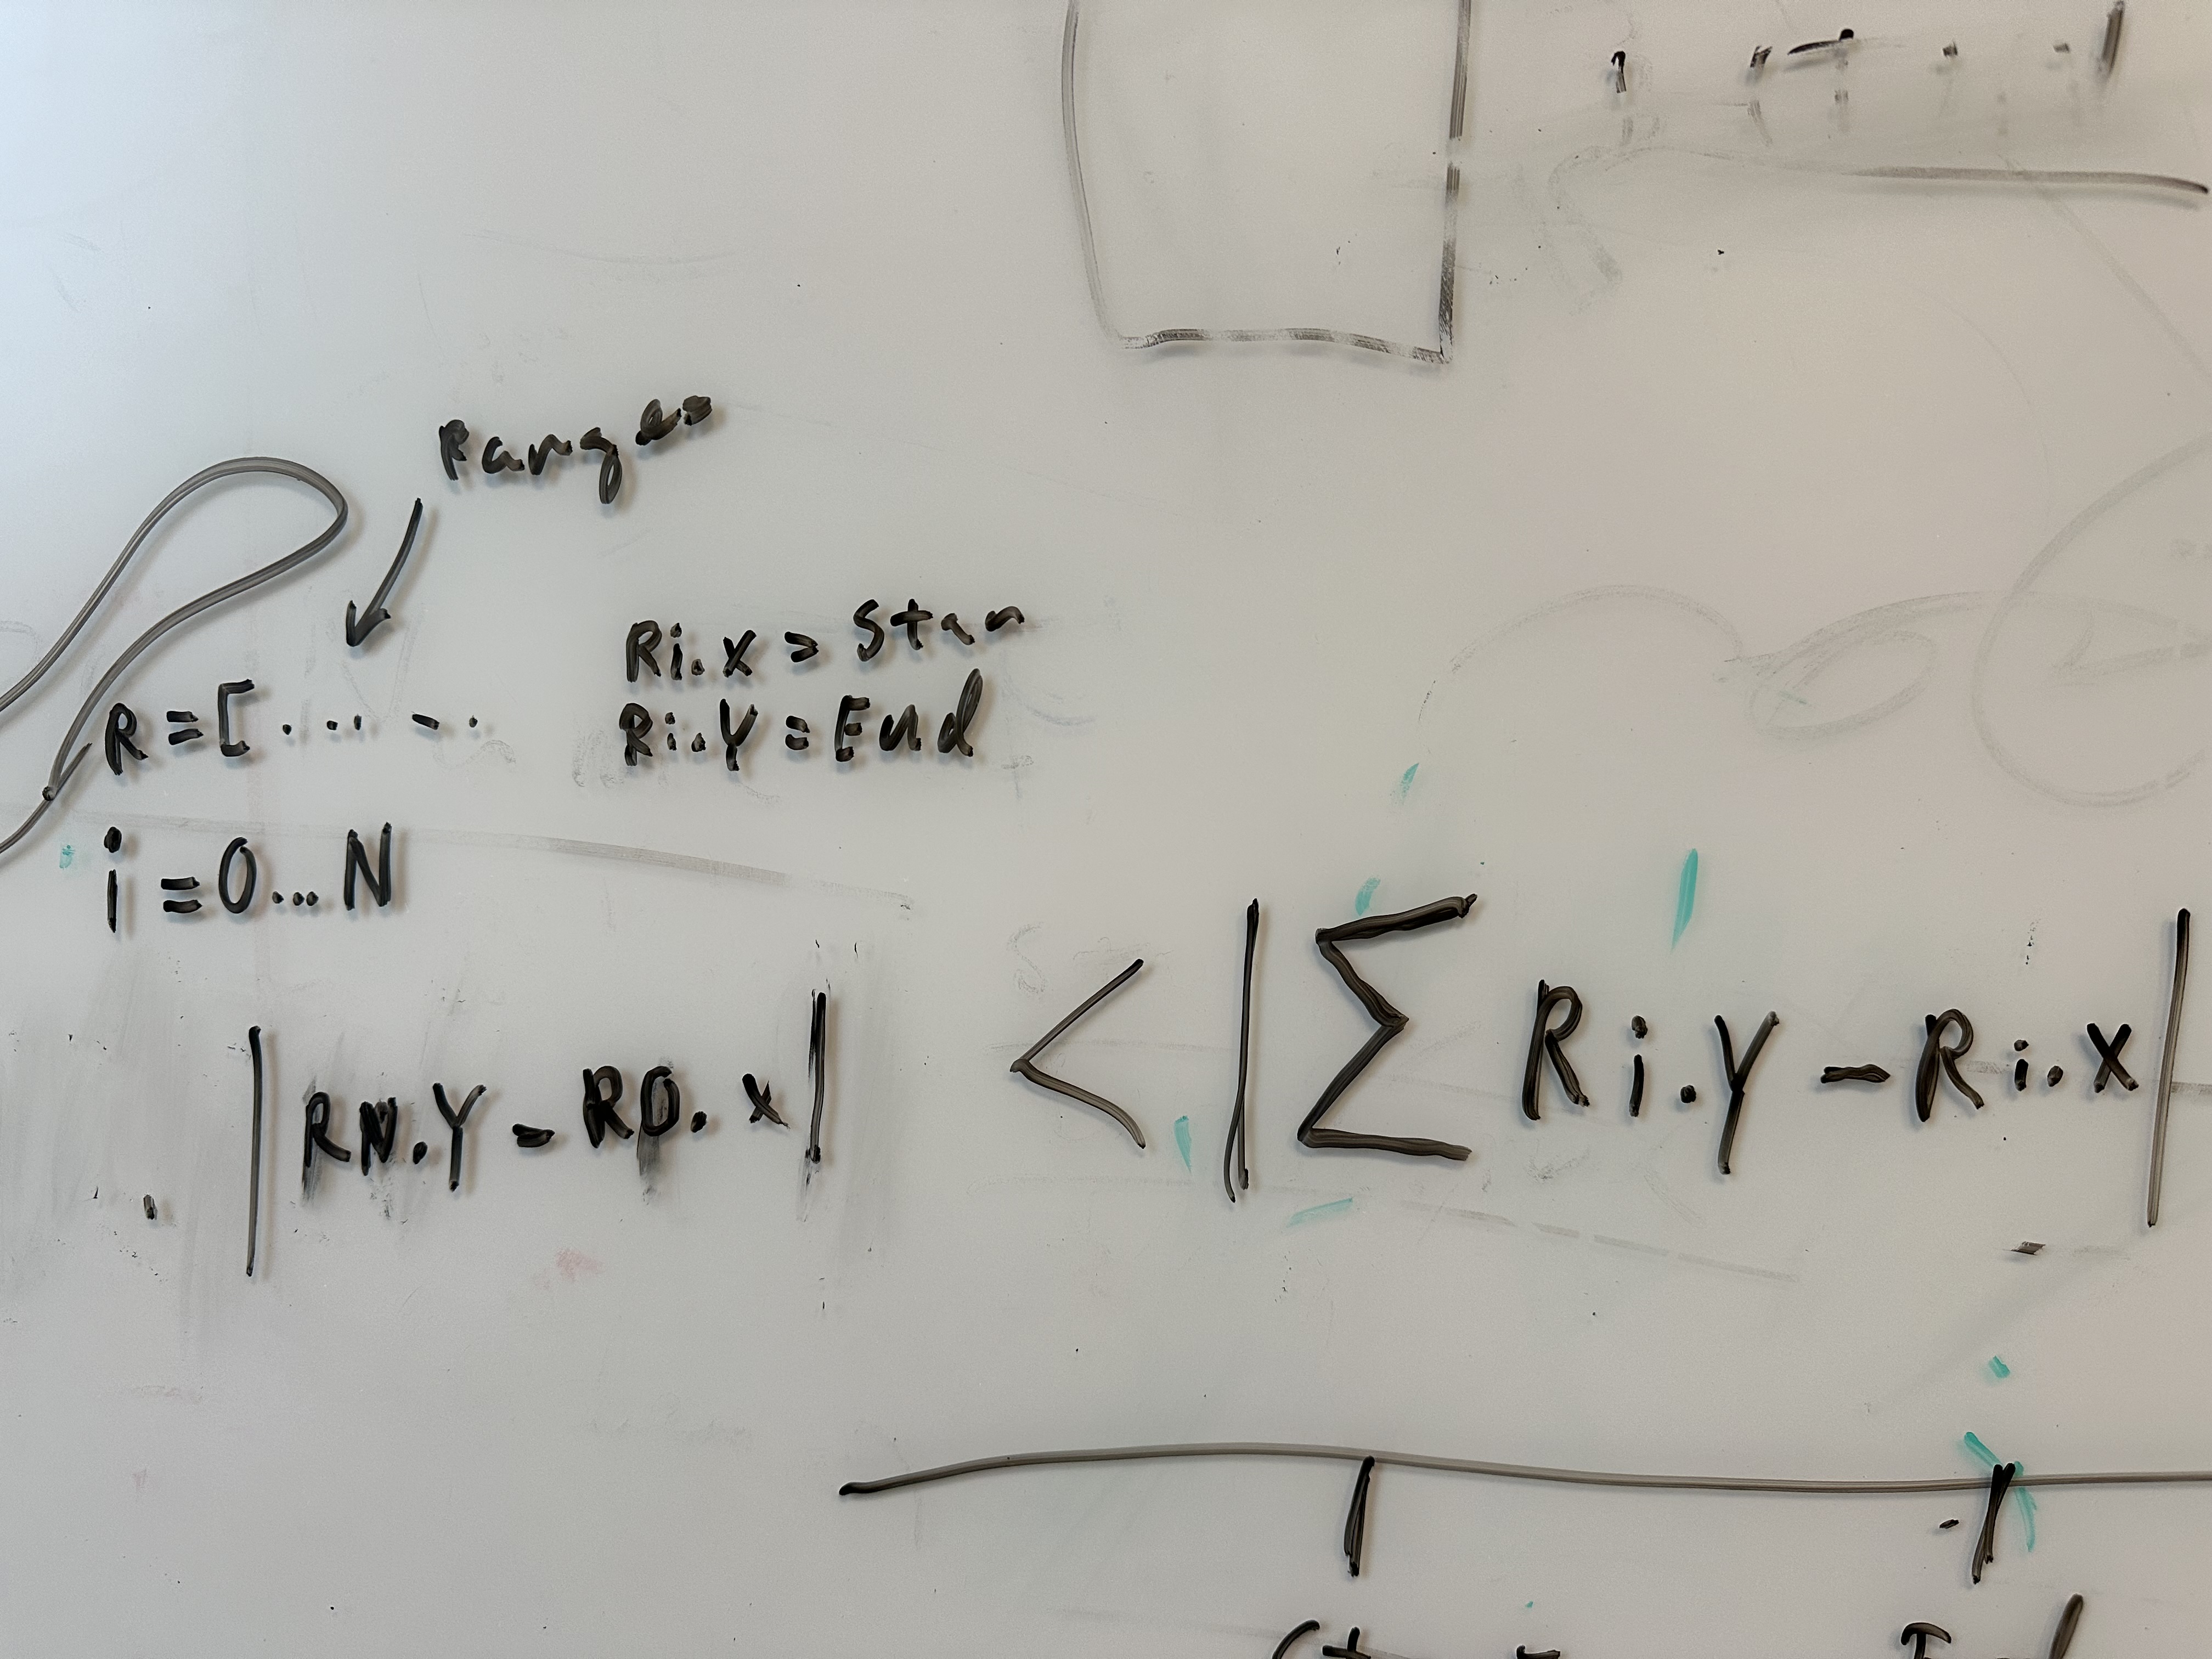 Ranges
R = [ . . . . - .
Ri.x = Star
Ri.Y = End
i = 0...N
|RN.Y - R0.x| < |∑ Ri.Y - Ri.x|